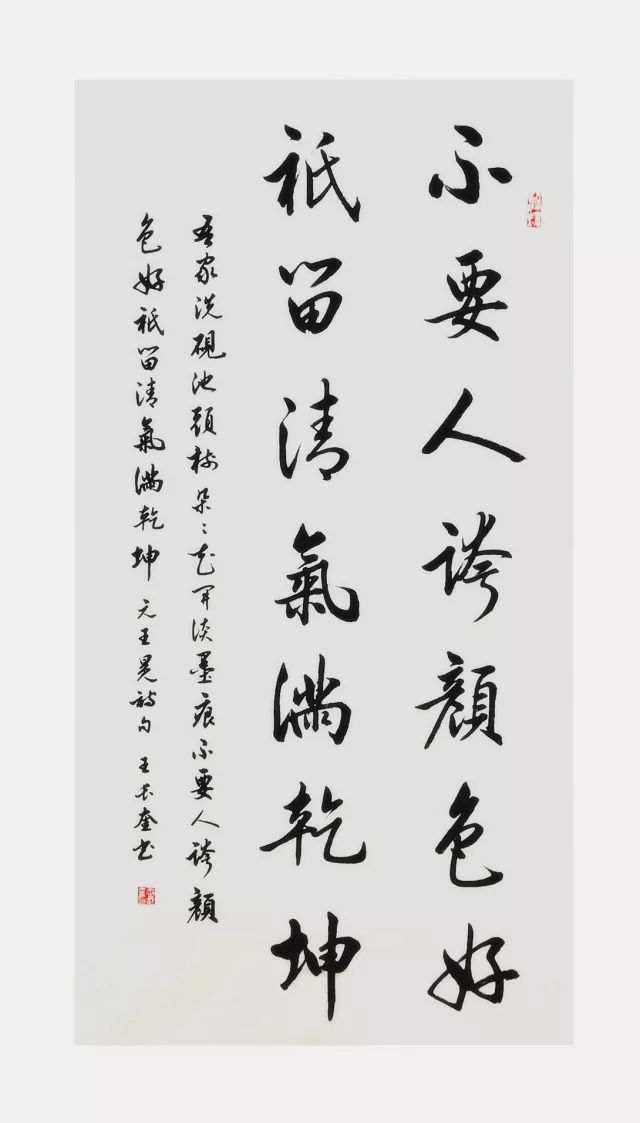 不要人誇顏色好
祇留清氣滿乾坤
吾家洗硯池頭樹朵〻花開淡墨痕不要人誇顏
色好祇留清氣滿乾坤 元王冕詩句 王長奎书